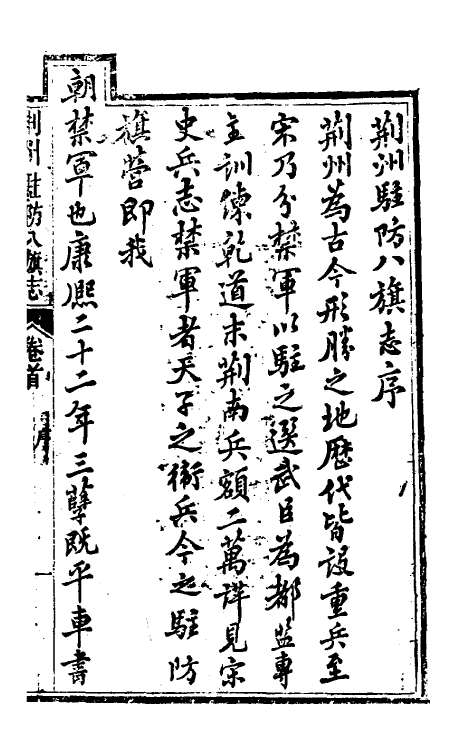 荊州駐防八旗志序
荊州為古今形勝之地歷代皆設重兵至
宋乃分禁軍以駐之選武臣為都監專
主訓練乾道末荊南兵額二萬詳見宋
史兵志禁軍者天子之衛兵今之駐防
旗營即我
朝禁軍也康熙二十二年三孽既平車書
荊州駐防八旗志 卷首 序 一